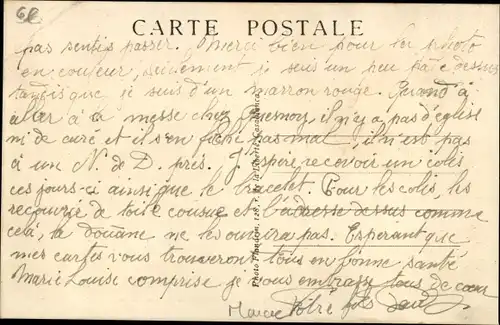 62
CARTE POSTALE
pas sentis passer. Merci bien pour la photo
en couleur, seulement je suis un peu pâle dessus
tandis que je suis d'un marron rouge. Quand à
aller à la messe chez Guesnoy, il n'y a pas d'église
ni de curé et il s'en fiche pas mal, il n'est pas
à un N. de D. près. J'espère recevoir un colis
ces jours-ci ainsi que le bracelet. Pour les colis, les
recouvrir de toile cousue et l'adresse dessus comme
cela, la douane ne les ouvrira pas. Esperant que
mes cartes vous trouveront tous en bonne santé
Marie Louise comprise je vous embrasse tous de cœur
Votre fils
Photo Flandrin, Casablanca